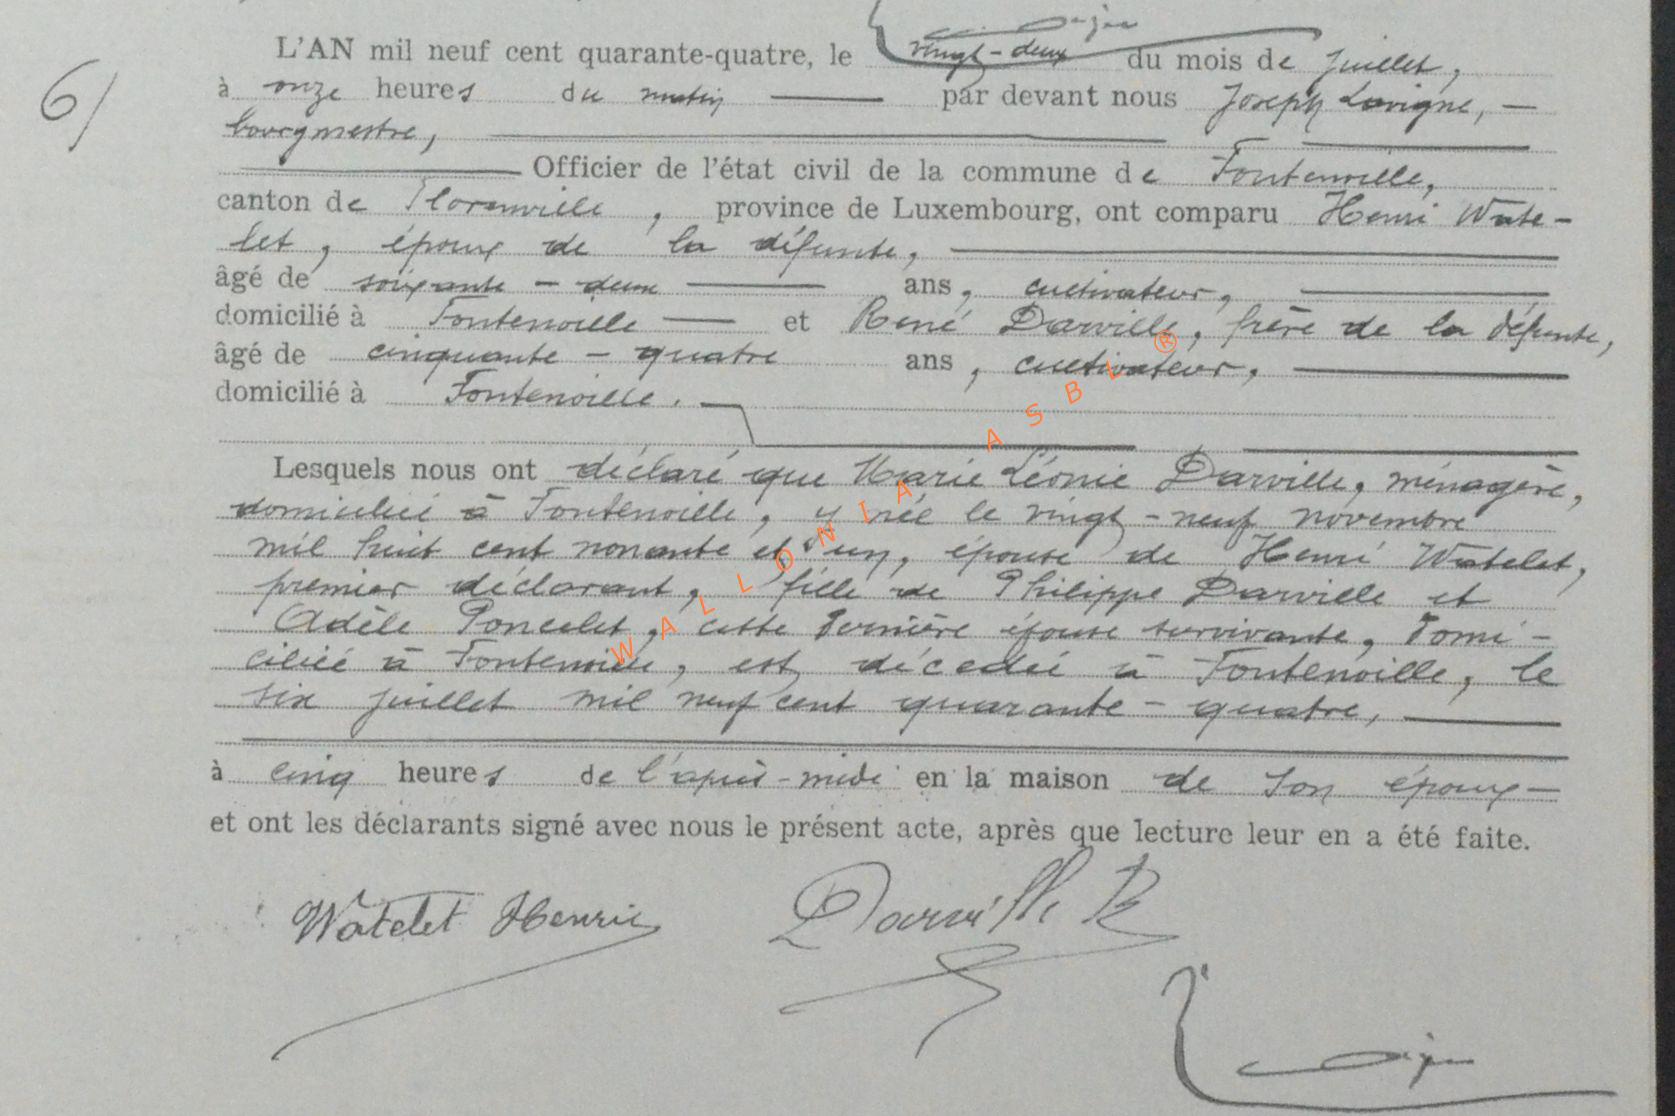 6/
L'AN mil neuf cent quarante-quatre, le vingt-deux du mois de juillet,
à onze heures du matin par devant nous Joseph Lavigne,
bourgmestre,
Officier de l'état civil de la commune de Fontenoille,
canton de Florenville, province de Luxembourg, ont comparu Henri Wate-
let, époux de la défunte,
âgé de soixante-deux ans, cultivateur,
domicilié à Fontenoille et René Darville, frère de la défunte,
âgé de cinquante-quatre ans, cultivateur,
domicilié à Fontenoille.
Lesquels nous ont déclaré que Marie Léonie Darville, ménagère,
domiciliée à Fontenoille, y née le vingt-neuf novembre
mil huit cent nonante et un, épouse de Henri Watelet,
premier déclarant, fille de Philippe Darville et
Adèle Poncelet, cette dernière épouse survivante, domi-
ciliée à Fontenoille, est décédée à Fontenoille, le
six juillet mil neuf cent quarante-quatre,
à cinq heures de l'après-midi en la maison de son époux
et ont les déclarants signé avec nous le présent acte, après que lecture leur en a été faite.
Watelet Henri Darville R
WALLONIA ASBL ®